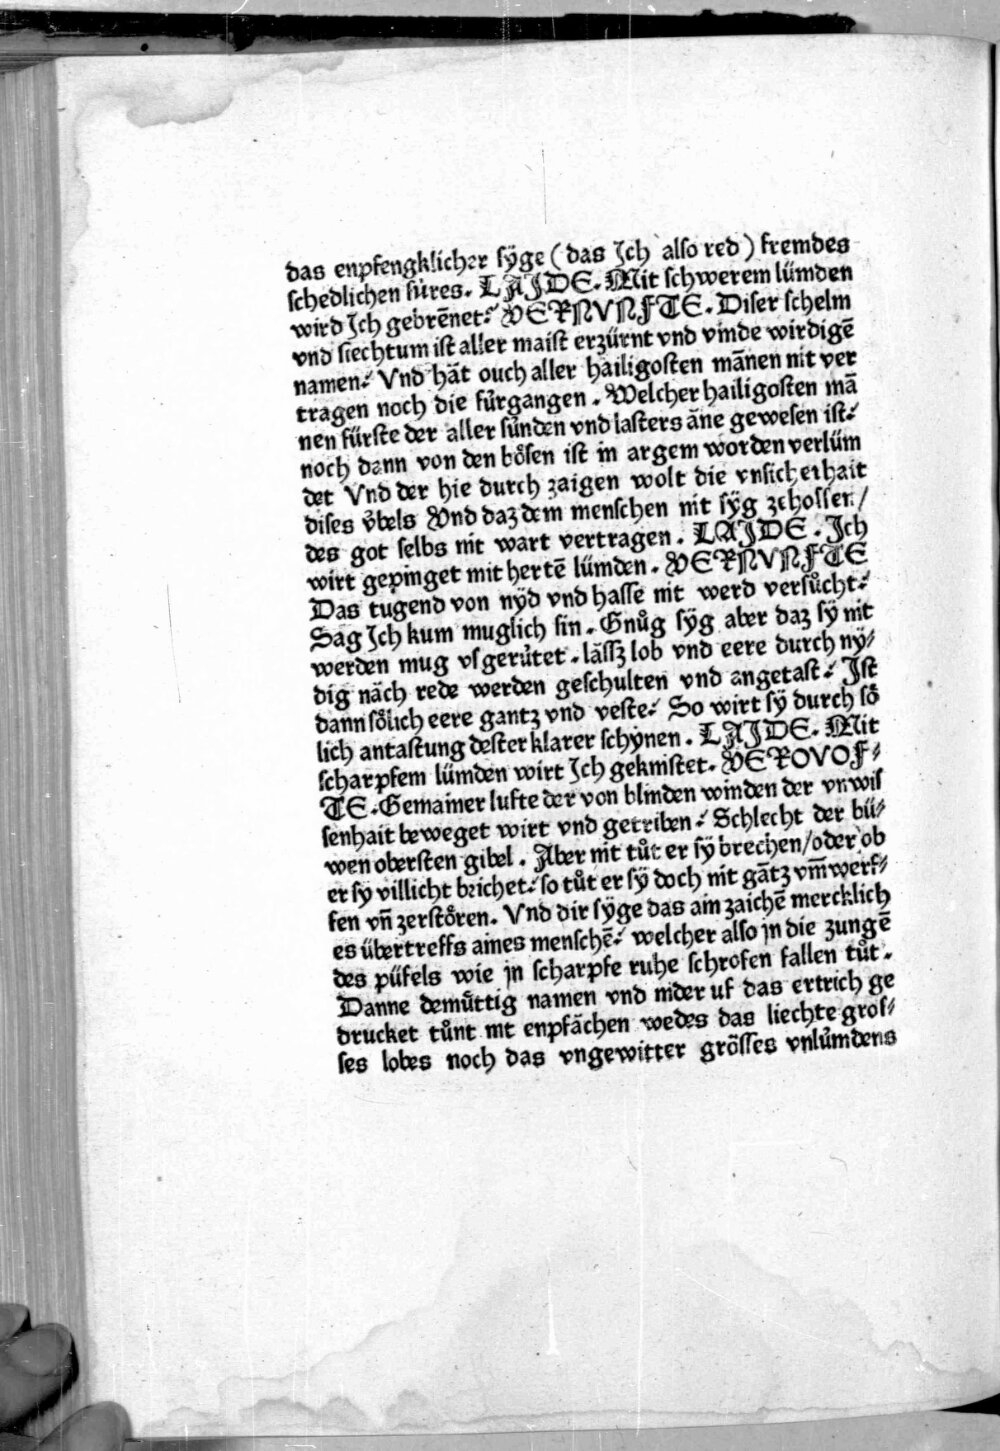 das enpfengklicher sÿge (das Jch also red) fremdes
schedlichen fúres. LAJDE. Mit schwerem lümden
wird Jch gebrēnet: VERNVNFTE. Diser schelm
vnd siechtum ist aller maist erzürnt vnd vmde wirdigē
namen: Vnd hāt ouch aller hailigosten mānen nit ver
tragen noch die fu̇rgangen. Welcher hailigosten mā
nen fürste der aller su̇nden vnd lasters āne gewesen ist:
noch dann von den bo̊sen ist in argem worden verlüm
det Vnd der hie durch zaigen wolt die vnsicherhait
dises v̇bels Vnd daz dem menschen nit sÿg zehoffen/
des got selbs nit wart vertragen. LAJDE. Jch
wirt gepinget mit hertē lümden. VERNVNFTE
Das tugend von nÿd vnd hasse nit werd versůcht:
Sag Jch kum muglich sin. Gnůg sÿg aber daz sÿ nit
werden mug vsgeru̇tet. lässz lob vnd eere durch nÿ⸗
dig nāch rede werden geschulten vnd angetast: Jst
dann so̊lich eere gantz vnd veste: So wirt sÿ durch so̊
lich antastung dester klarer schÿnen. LAJDE. Mit
scharpfem lümden wirt Jch geknistet. VEROVOF⸗
TE. Gemainer lufte der von blinden winden der vnwis
senhait beweget wirt vnd getriben: Schlecht der bü⸗
wen obersten gibel. Aber nit tůt er sÿ brechen/oder ob
er sy villicht brichet: so tůt er sÿ doch nit gātz vm̄werf⸗
fen vn̄ zersto̊ren. Vnd dir sÿge das ain zaichē mercklich
es übertreffs aines menschē: welcher also jn die zungē
des püfels wie jn scharpfe ruhe schrofen fallen tůt.
Danne demu̇ttig namen vnd nider uf das ertrich ge
drucket tůnt nit enpfāchen wedes das liechte gros⸗
ses lobes noch das vngewitter grösses vnlu̇mdens